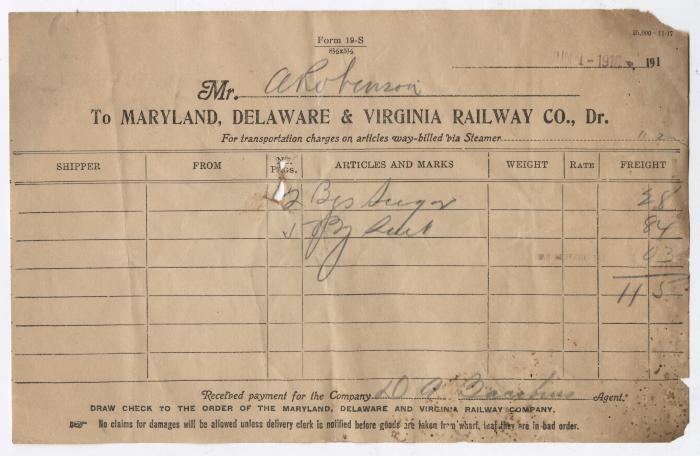 Form 19-S
8½x5½
25,000-11-17
JUN 1 - 1918 191
Mr. A Robinson
To MARYLAND, DELAWARE & VIRGINIA RAILWAY CO., Dr.
For transportation charges on articles way-billed via Steamer
SHIPPER FROM No. Pkgs. ARTICLES AND MARKS WEIGHT RATE FREIGHT
2 Bgs Sugar 28
1 84
03
1 15
Received payment for the Company Agent.
DRAW CHECK TO THE ORDER OF THE MARYLAND, DELAWARE AND VIRGINIA RAILWAY COMPANY.
No claims for damages will be allowed unless delivery clerk is notified before goods are taken from wharf, that they are in bad order.